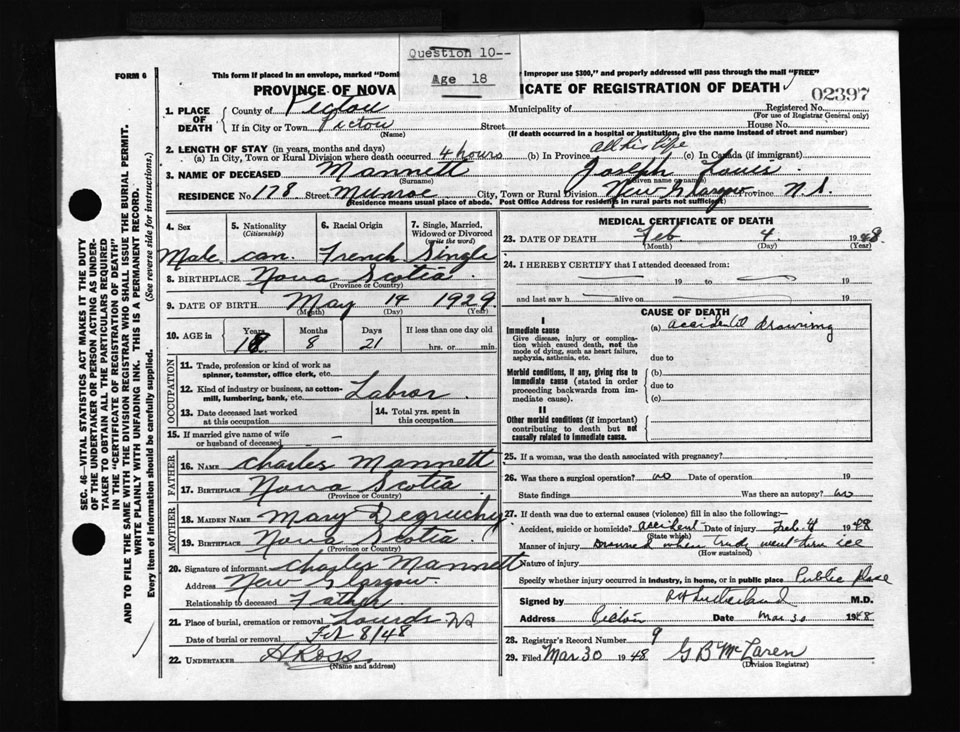 Question 10--
Age 18
FORM 6
This form if placed in an envelope, marked "Domi
r improper use $300," and properly addressed will pass through the mail "FREE"
PROVINCE OF NOVA
CATE OF REGISTRATION OF DEATH
02397
1. PLACE OF DEATH
County of Pictou Municipality of Registered No.
(For use of Registrar General only)
If in City or Town Pictou Street House No.
(Name) (If death occurred in a hospital or institution, give the name instead of street and number)
2. LENGTH OF STAY (in years, months and days)
(a) In City, Town or Rural Division where death occurred 4 hours (b) In Province all his life (c) In Canada (if immigrant)
3. NAME OF DECEASED Mannett Joseph Louis
(Surname) (Given name or names)
RESIDENCE No 178 Street Munroe City, Town or Rural Division New Glasgow Province N.S.
(Residence means usual place of abode. Post Office Address for residents in rural parts not sufficient)
4. Sex 5. Nationality (Citizenship) 6. Racial Origin 7. Single, Married, Widowed or Divorced (write the word)
Male can. French Single
8. BIRTHPLACE Nova Scotia
(Province or Country)
9. DATE OF BIRTH May 14 1929
(Month) (Day) (Year)
10. AGE in Years Months Days If less than one day old
18 8 21 hrs. or min.
OCCUPATION
11. Trade, profession or kind of work as spinner, teamster, office clerk, etc.
12. Kind of industry or business, as cotton-mill, lumbering, bank, etc. Labror
13. Date deceased last worked at this occupation
14. Total yrs. spent in this occupation
15. If married give name of wife or husband of deceased —
FATHER
16. NAME Charles Mannett
17. BIRTHPLACE Nova Scotia
(Province or Country)
MOTHER
18. MAIDEN NAME Mary Degruchy
19. BIRTHPLACE Nova Scotia
(Province or Country)
20. Signature of informant Charles Mannett
Address New Glasgow
Relationship to deceased Father
21. Place of burial, cremation or removal Lourds NS
Date of burial or removal Feb 8/48
22. UNDERTAKER H Ross
(Name and address)
MEDICAL CERTIFICATE OF DEATH
23. DATE OF DEATH Feb 4 1948
(Month) (Day) (Year)
24. I HEREBY CERTIFY that I attended deceased from:
19 to 19
and last saw h alive on 19
CAUSE OF DEATH
I
Immediate cause
Give disease, injury or complication which caused death, not the mode of dying, such as heart failure, asphyxia, asthenia, etc.
(a) accidental drowning
due to
Morbid conditions, if any, giving rise to immediate cause (stated in order proceeding backwards from immediate cause).
(b)
due to
(c)
II
Other morbid conditions (if important) contributing to death but not causally related to immediate cause.
25. If a woman, was the death associated with pregnancy?
26. Was there a surgical operation? no Date of operation 19
State findings Was there an autopsy? no
27. If death was due to external causes (violence) fill in also the following:—
Accident, suicide or homicide? accident Date of injury Feb. 4 1948
(State which)
Manner of injury Drowned when truck went thru ice
(How sustained)
Nature of injury
Specify whether injury occurred in industry, in home, or in public place Public place
Signed by Sutherland M.D.
Address Pictou Date Mar 30 1948
28. Registrar's Record Number 9
29. Filed Mar 30 1948 G B McLaren
(Division Registrar)
SEC. 46—VITAL STATISTICS ACT MAKES IT THE DUTY
OF THE UNDERTAKER OR PERSON ACTING AS UNDER-
TAKER TO OBTAIN ALL THE PARTICULARS REQUIRED
IN THE "CERTIFICATE OF REGISTRATION OF DEATH"
AND TO FILE THE SAME WITH THE DIVISION REGISTRAR WHO SHALL ISSUE THE BURIAL PERMIT.
WRITE PLAINLY WITH UNFADING INK. THIS IS A PERMANENT RECORD.
Every item of information should be carefully supplied. (See reverse side for instructions.)